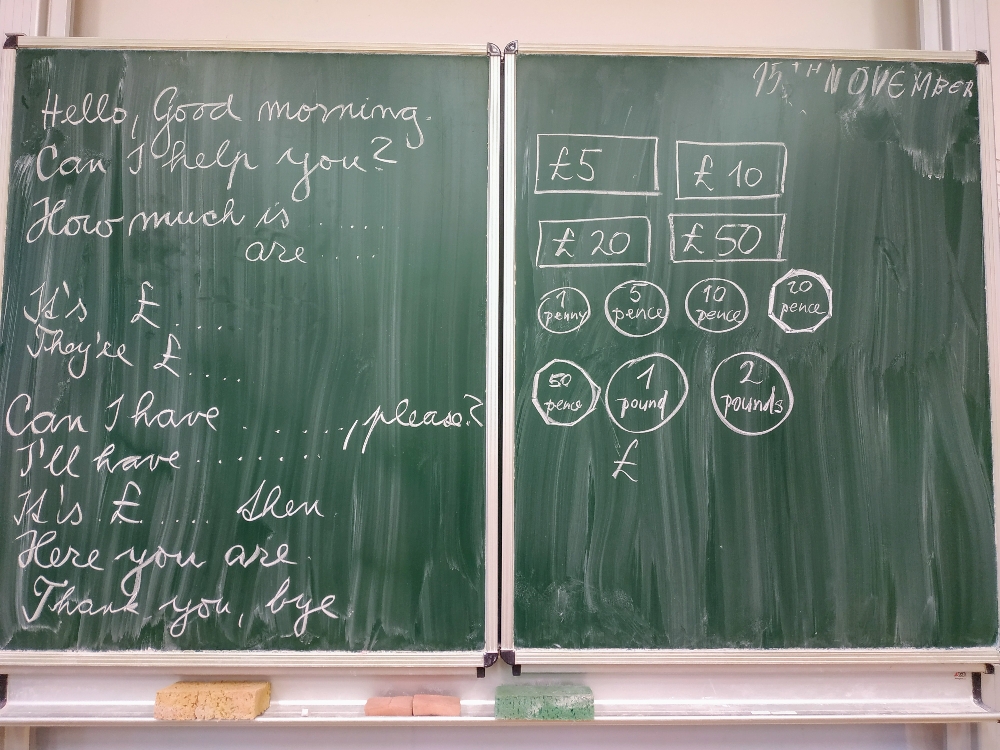 Hello, Good morning.
Can I help you?
How much is .....
are ....
It's £ ....
They're £ ....
Can I have ......., please?
I'll have .......
It's £ .... then
Here you are
Thank you, bye
15TH NOVEMBER
£5 £10
£20 £50
1 penny 5 pence 10 pence 20 pence
50 pence 1 pound 2 pounds
£